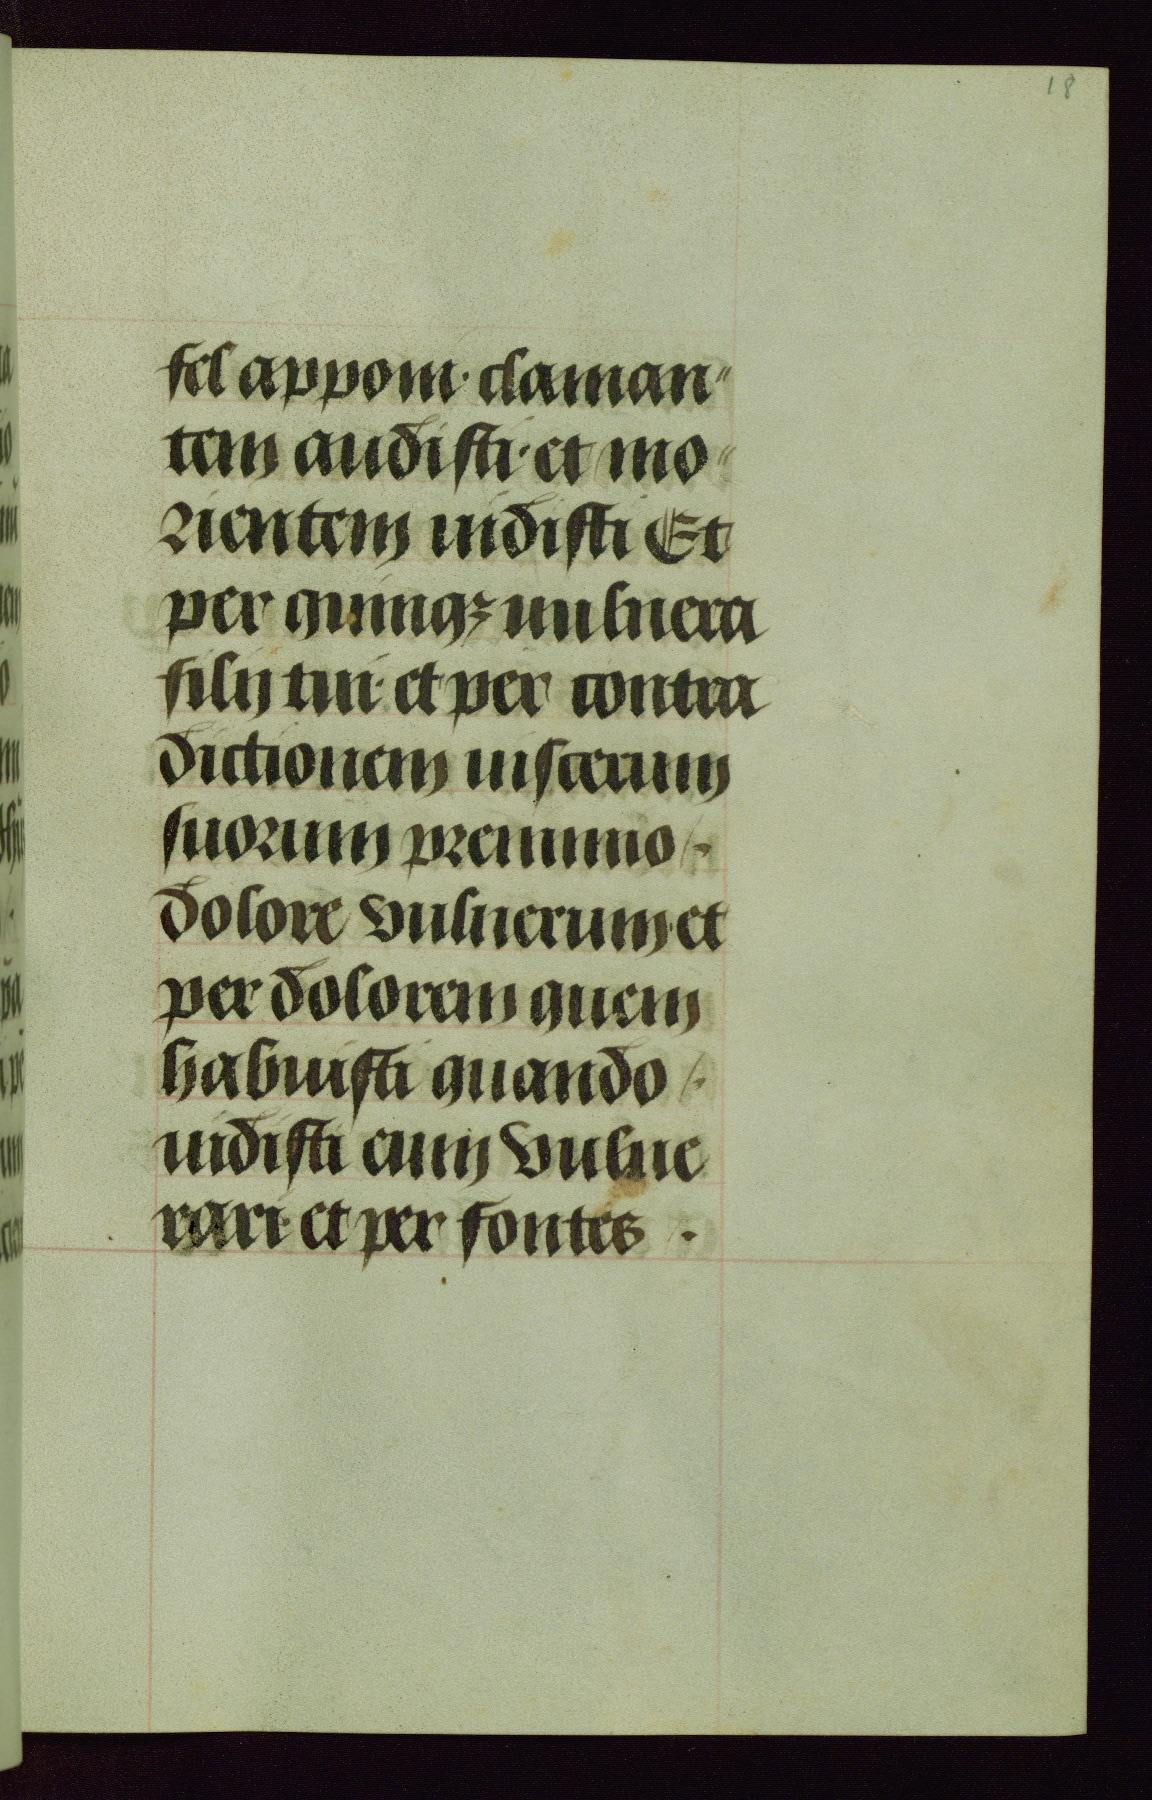 18
fel apponi· claman"
tem audisti· et mo"
rientem uidisti Et
per quinqꝫ uulnera
filij tui· et per contra
dictionem uiscerum
suorum prenimio /·
dolore vulnerum· et
per dolorem quem
habuisti quando /·
uidisti eum Vulne
rari· et per fontes ·